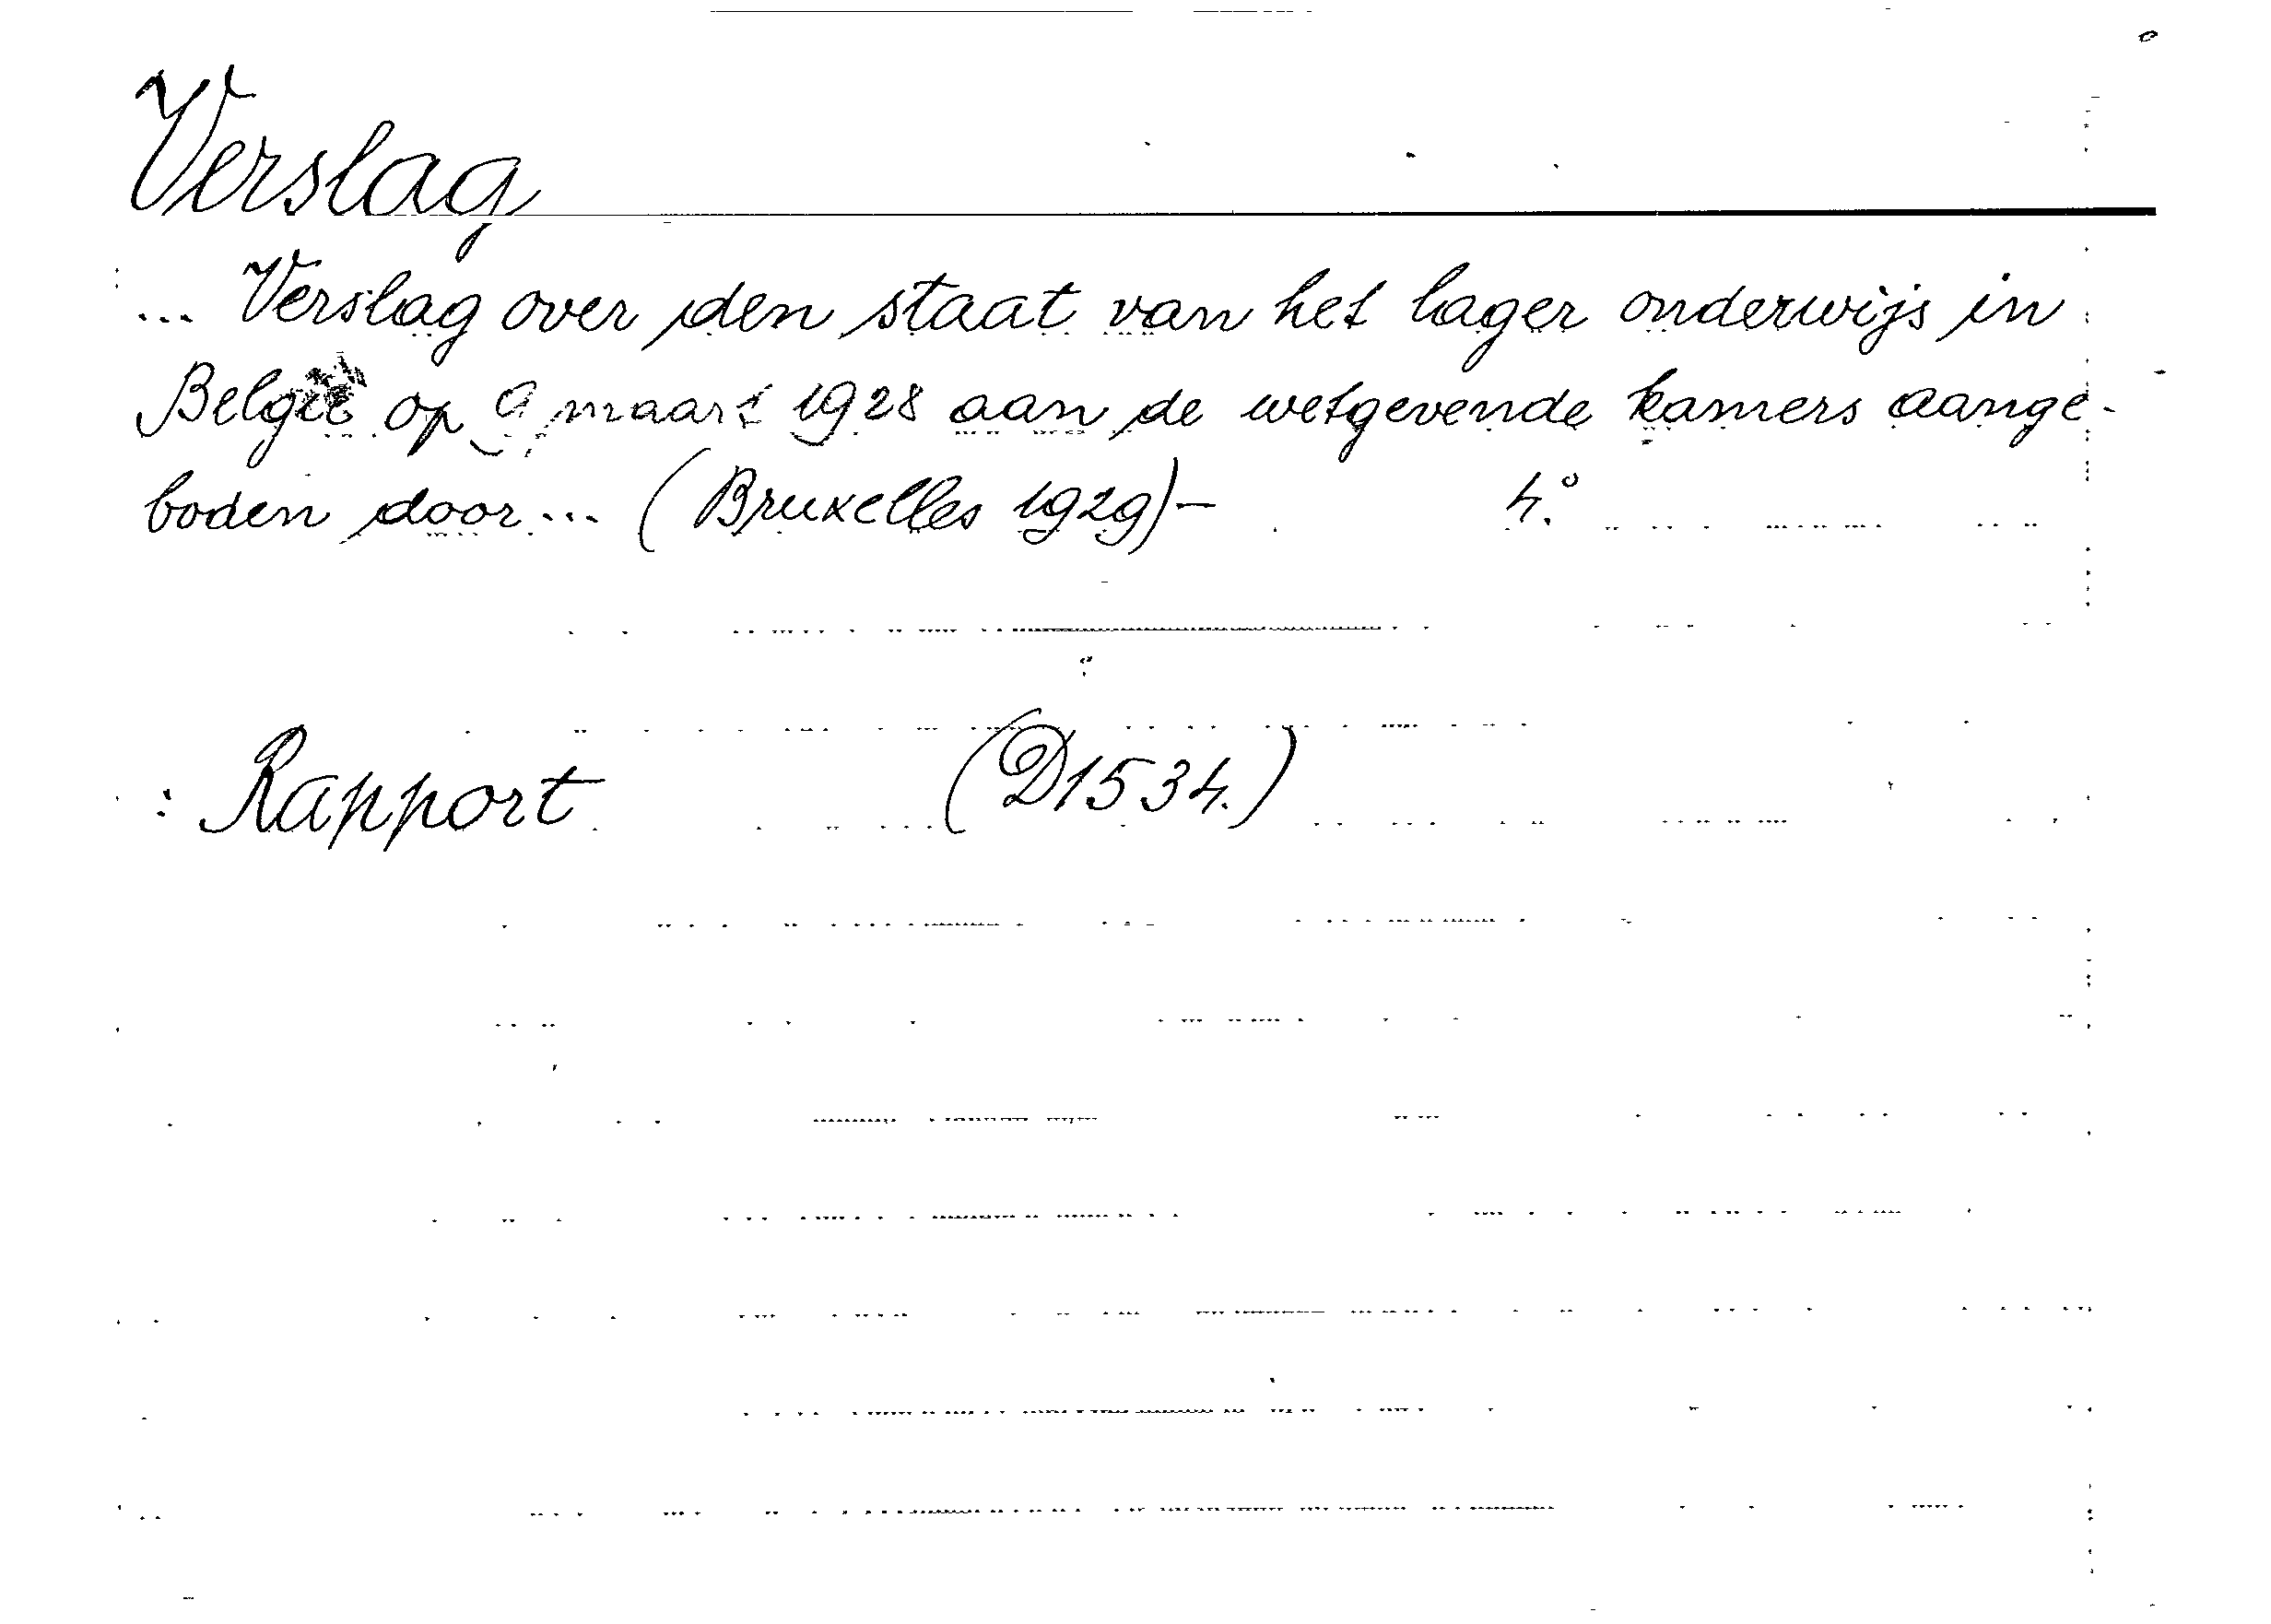 Verslag
... Verslag over den staat van het lager onderwijs in
België op 9 maart 1928 aan de wetgevende kamers aange-
boden door... (Bruxelles 1929)- 4.°
: Rapport (D1534.)